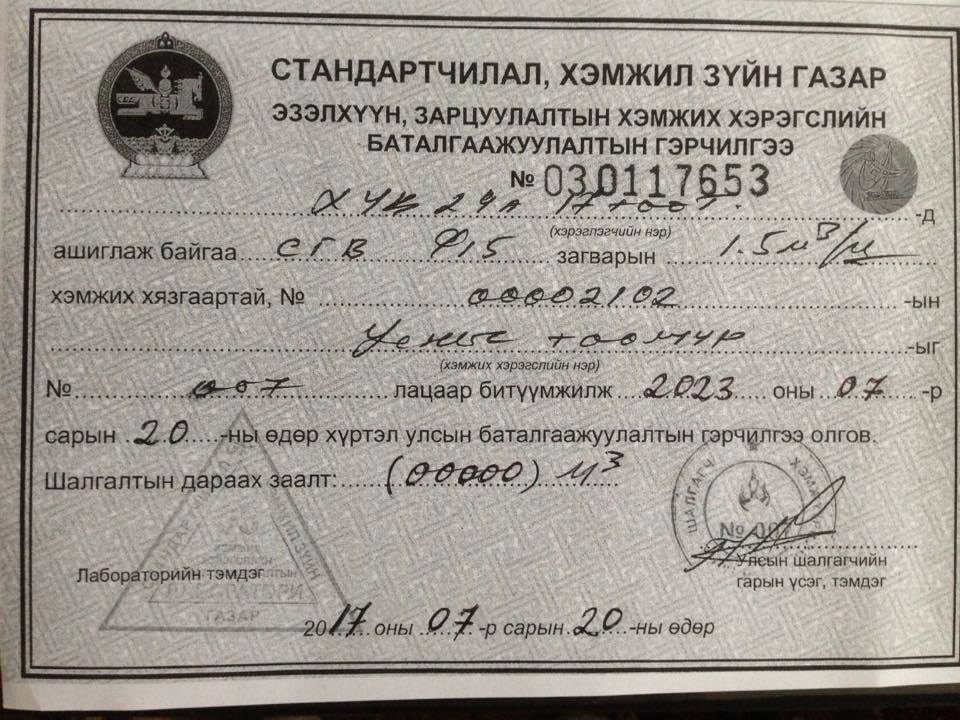 СТАНДАРТЧИЛАЛ, ХЭМЖИЛ ЗҮЙН ГАЗАР
ЭЗЭЛХҮҮН, ЗАРЦУУЛАЛТЫН ХЭМЖИХ ХЭРЭГСЛИЙН
БАТАЛГААЖУУЛАЛТЫН ГЭРЧИЛГЭЭ
№ 030117653
ХУК 24л 17 тоот -д
(хэрэглэгчийн нэр)
ашиглаж байгаа СГВ Ф15 загварын 1.5м³/ц
хэмжих хязгаартай, № 00002102 -ын
Усны тоолуур -ыг
(хэмжих хэрэгслийн нэр)
№ 007 лацаар битүүмжилж 2023 оны 07 -р
сарын 20 -ны өдөр хүртэл улсын баталгаажуулалтын гэрчилгээ олгов.
Шалгалтын дараах заалт: (00000) м³
ШАЛГАГЧ
Лабораторийн тэмдэг
Улсын шалгагчийн
гарын үсэг, тэмдэг
ГАЗАР
2017 оны 07 -р сарын 20 -ны өдөр